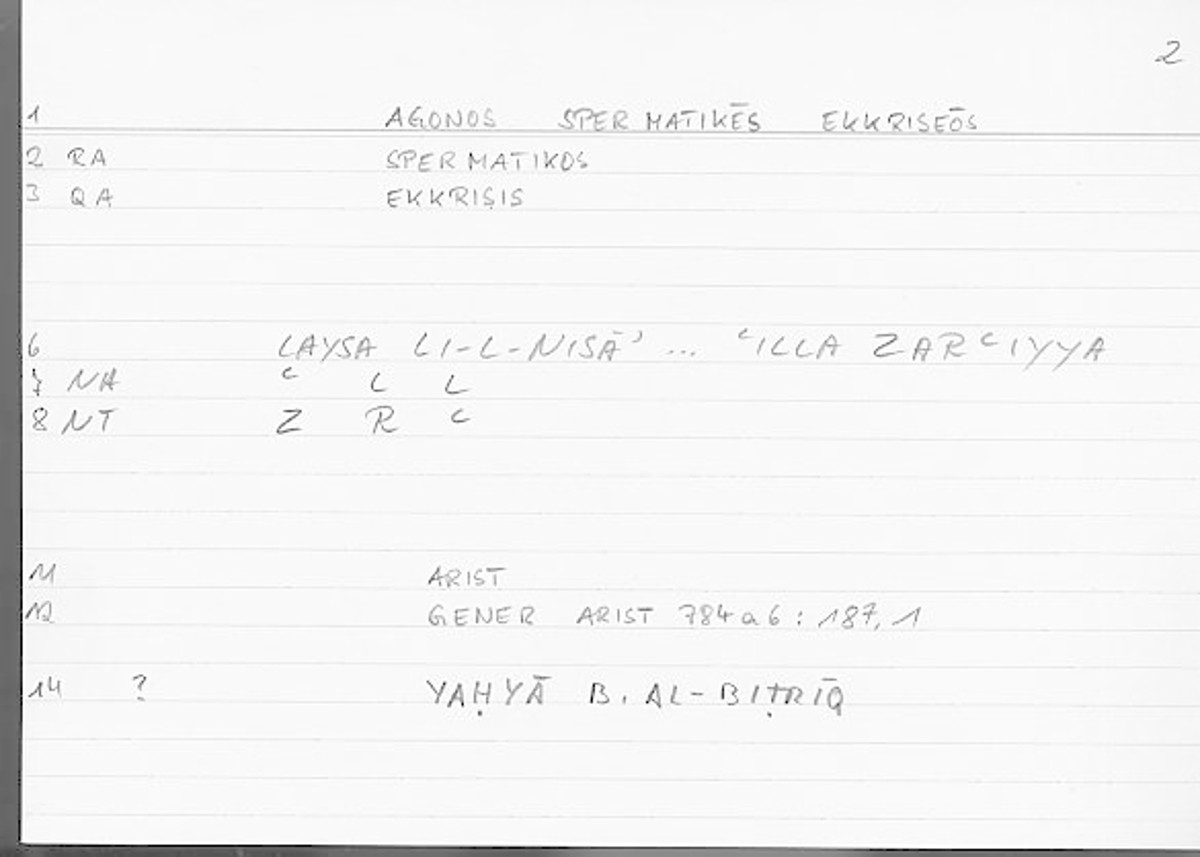 2
1 AGONOS SPERMATIKĒS EKKRISEŌS
2 RA SPERMATIKOS
3 QA EKKRISIS
6 LAYSA LI-L-NISĀʾ ... ʿILLA ZARʿIYYA
7 NA ʿ L L
8 NT Z R ʿ
11 ARIST
12 GENER ARIST 784a6 : 187,1
14 ? YAḤYĀ B. AL-BIṬRĪQ